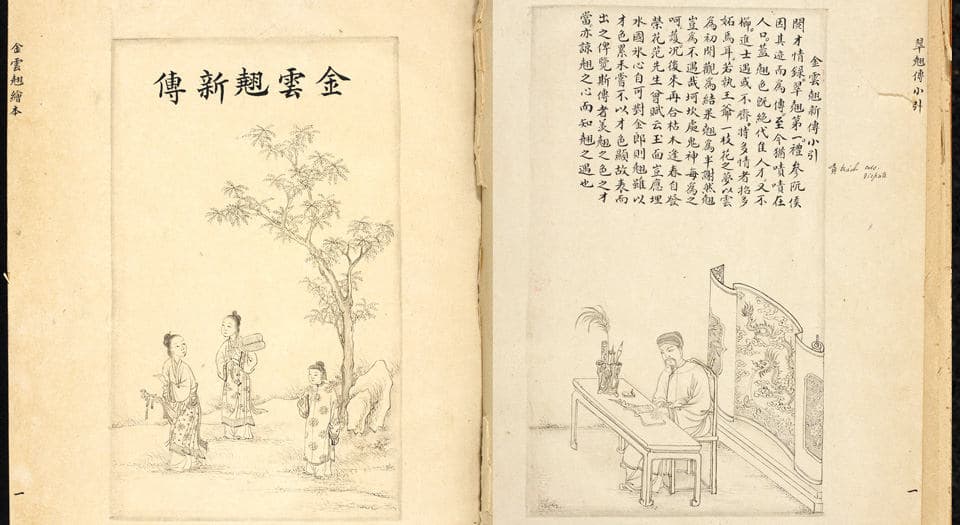 翠翹傳小引
金雲翹新傳小引
閱才情錄翠翹第一禮參阮侯
因其迹而為傳至今猶嘖嘖在
人口蓋翹色既絕代隹人才又不
櫛進士遇或不齊將多情者招多
妬焉耳若執王爺一枝花之夢以雲
為初開觀為結果翹為半謝然翹
豈為不遇哉坷坎處鬼神每為之
呵護况後來再合枯木逢春自發
榮花范先生曾賦云玉面豈應埋
水國氷心自可對金郎則翹雖以
才色累未嘗不以才色顯故表而
出之俾覽斯傳者羨翹之色之才
當亦諒翹之心而知翹之遇也
一
金雲翹新傳
金雲翹繪本
一